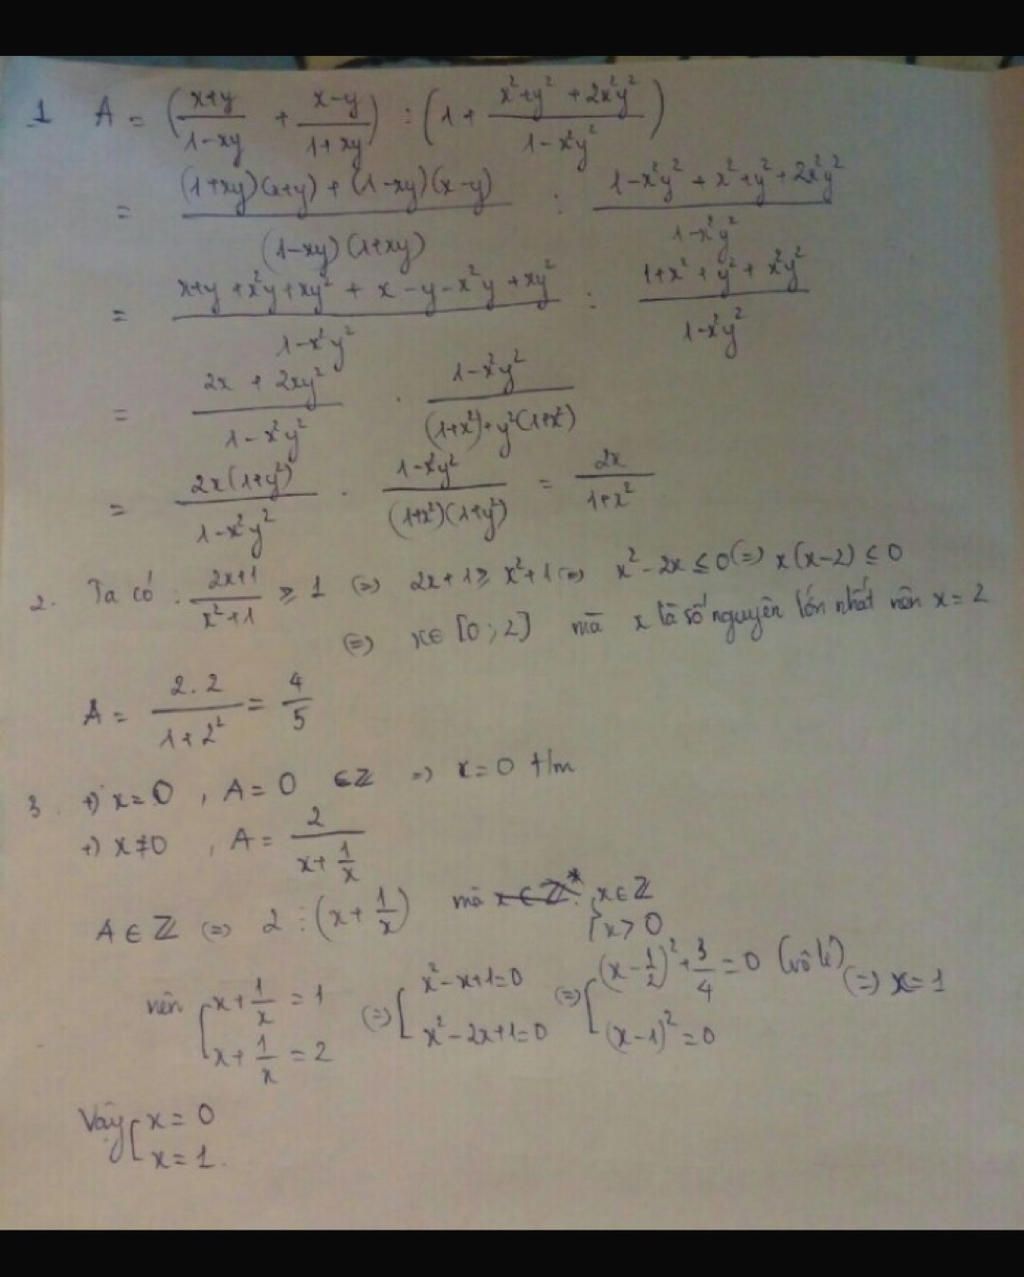 1 A = ((x+y)/(1-xy) + (x-y)/(1+xy)) : (1 + (x²+y²+2x²y²)/(1-x²y²))
= ((1+xy)(x+y) + (1-xy)(x-y))/((1-xy)(1+xy)) : (1-x²y²+x²+y²+2x²y²)/(1-x²y²)
= (x+y+x²y+xy²+x-y-x²y+xy²)/(1-x²y²) : (1+x²+y²+x²y²)/(1-x²y²)
= (2x+2xy²)/(1-x²y²) . (1-x²y²)/((1+x²)+y²(1+x²))
= (2x(1+y²))/(1-x²y²) . (1-x²y²)/((1+x²)(1+y²)) = 2x/(1+x²)
2. Ta có : (2x+1)/(x²+1) ≥ 1 (=) 2x+1 ≥ x²+1 (=) x²-2x ≤ 0 (=) x(x-2) ≤ 0
(=) x∈ [0;2] mà x là số nguyên lớn nhất nên x = 2
A = (2.2)/(1+2²) = 4/5
3. +) x=0 , A=0 ∈ℤ => x=0 t/m
+) x≠0 , A = 2/(x+1/x)
A∈ℤ (=) 2 ⋮ (x+1/x) mà x∈ℤ* : {x∈ℤ
x>0
nên [x+1/x = 1 (=) [x²-x+1=0 (=) [(x-1/2)²+3/4=0 (vô lí) (=) x=1
x+1/x = 2 x²-2x+1=0 (x-1)²=0
Vậy [x=0
x=1.